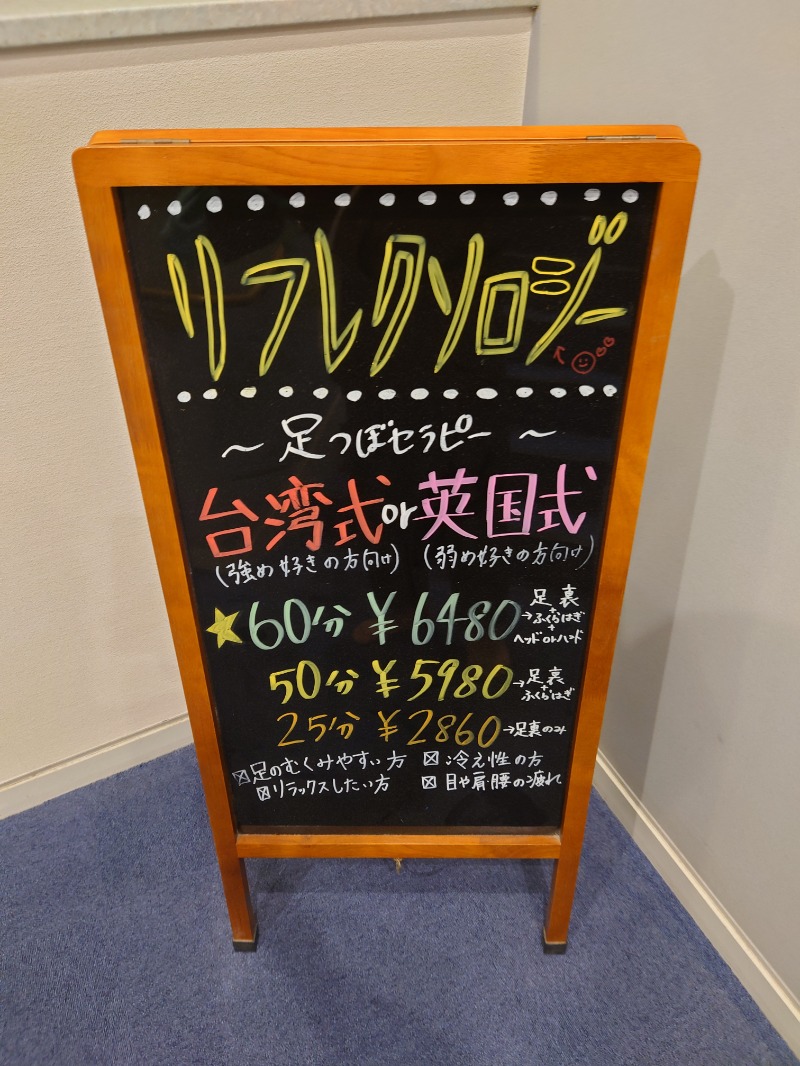 リフレクソロジー
～ 足つぼセラピー ～
台湾式or英国式
(強め好きの方向け) (弱め好きの方向け)
★60分 ¥6480→足裏+ふくらはぎ+ヘッドorハンド
50分 ¥5980→足裏+ふくらはぎ
25分 ¥2860→足裏のみ
☒足のむくみやすい方 ☒冷え性の方
☒リラックスしたい方 ☒目や肩・腰の疲れ